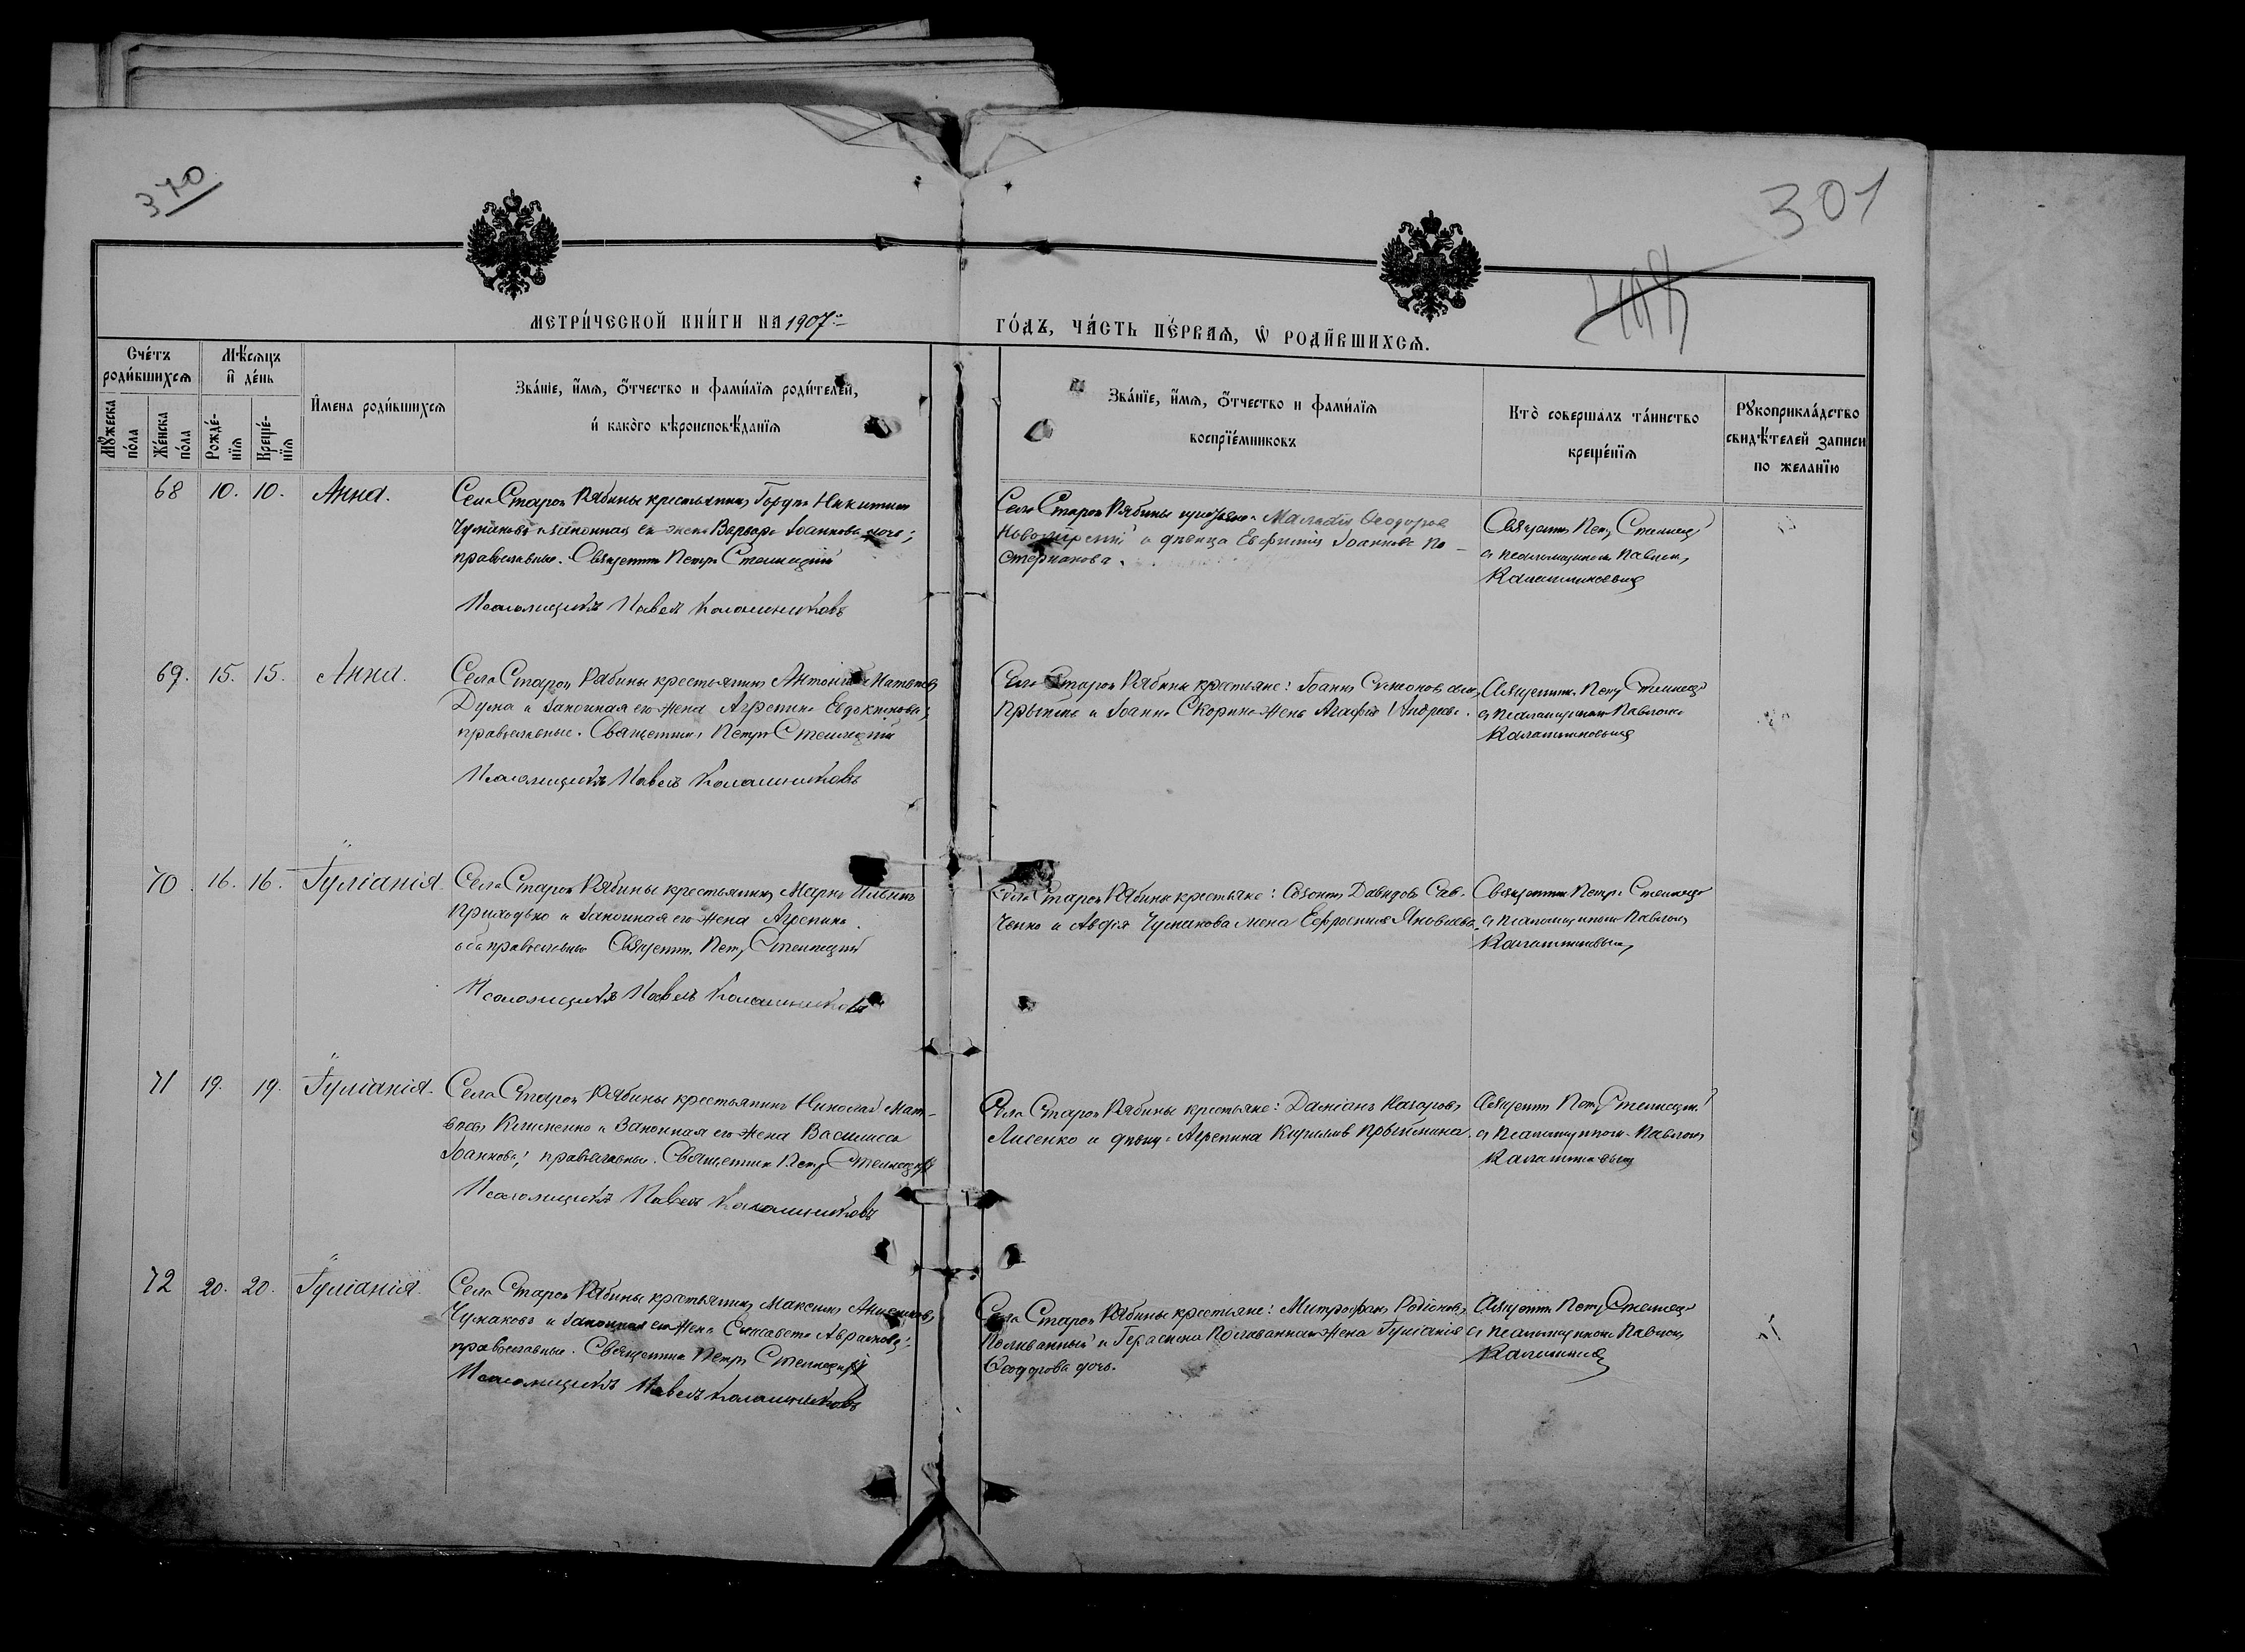 370
301
МЕТРИ́ЧЕСКОЙ КНИ́ГИ НА 1907
ГО́ДЪ, ЧА́СТЬ ПЕ́РВАѦ, Ѡ РОДИ́ВШИХСѦ.
Сче́тъ роди́вшихсѧ
Мѣ́сѧцъ и҆ де́нь
И҆мена роди́вшихсѧ
Зва́нїе, и҆́мѧ, ѻ҆́тчество и фами́лїѧ роди́телей,
и҆ како́го вѣроисповѣ́данїѧ
Мꙋ́жеска по́ла
Же́нска по́ла
Рожде́нїѧ
Креще́нїѧ
Зва́нїе, и҆́мѧ, ѻ҆́тчество и фами́лїѧ
воспрїе́мниковъ
Кто̀ соверша́лъ та́инство
креще́нїѧ
Рꙋкоприкла́дство
свидѣ́телей записи
по жела́нїю
68 10. 10. Анна.
Села Старой Рябины крестьянинъ Гордій Никитинъ
Чумаковъ и законная его жена Варвара Іоаннова дочь;
православные. Священникъ Петръ Стеллецкій
Псаломщикъ Павелъ Калашниковъ
Села Старой Рябины Ѳеодоровъ
и дѣвица Евфимія Іоаннова По-
стернакова.
Священникъ Петръ Стеллецкій
съ псаломщикомъ Павломъ
Калашниковымъ
69. 15. 15. Анна.
Села Старой Рябины крестьянинъ Антоній
Дума и законная его жена Агрепина Евдокимова;
православные. Священникъ Петръ Стеллецкій
Псаломщикъ Павелъ Калашниковъ
Села Старой Рябины крестьяне: Іоаннъ
и Іоанна Скорика жена Агафія Андреева.
Священникъ Петръ Стеллецкій
съ псаломщикомъ Павломъ
Калашниковымъ
70 16. 16. Іуліанія.
Села Старой Рябины крестьянинъ Маркъ Ильинъ
Приходько и законная его жена Агрепина
оба православные Священникъ Петръ Стеллецкій
Псаломщикъ Павелъ Калашниковъ
Села Старой Рябины крестьяне: Созонтъ Давидовъ Сав-
ченко и Авдія Чумакова жена Ефросинія Яковлева.
Священникъ Петръ Стеллецкій
съ псаломщикомъ Павломъ
Калашниковымъ
71 19. 19. Іуліанія.
Села Старой Рябины крестьянинъ Николай Мат-
вѣевъ и законная его жена Василиса
Іоаннова; православные. Священникъ Петръ Стеллецкій
Псаломщикъ Павелъ Калашниковъ
Села Старой Рябины крестьяне: Даміанъ Назаровъ
Лисенко и дѣвица Агрепина
Священникъ Петръ Стеллецкій
съ псаломщикомъ Павломъ
Калашниковымъ
72 20. 20. Іуліанія.
Села Старой Рябины крестьянинъ Максимъ
Чумаковъ и законная его жена Елисавета Абрамова;
православные. Священникъ Петръ Стеллецкій
Псаломщикъ Павелъ Калашниковъ
Села Старой Рябины крестьяне: Митрофанъ Родіоновъ
Поливанный и Герасима Поливаннаго жена Іуліанія
Ѳеодорова дочь.
Священникъ Петръ Стеллецкій
съ псаломщикомъ Павломъ